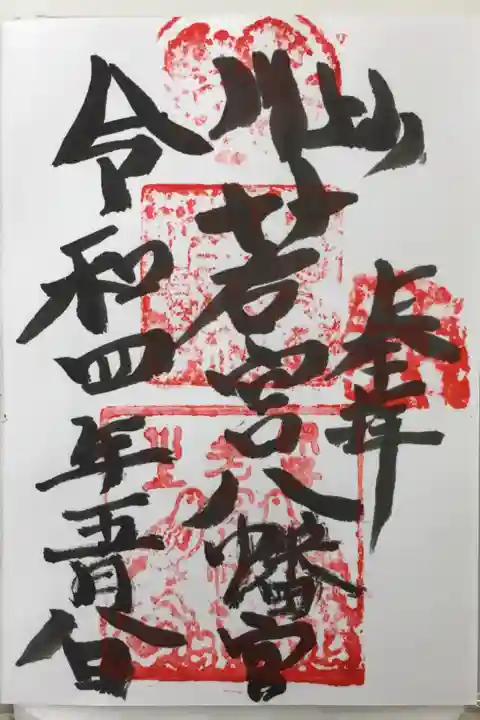 奉拝
川上山
若宮八幡宮
令和四年五月八日